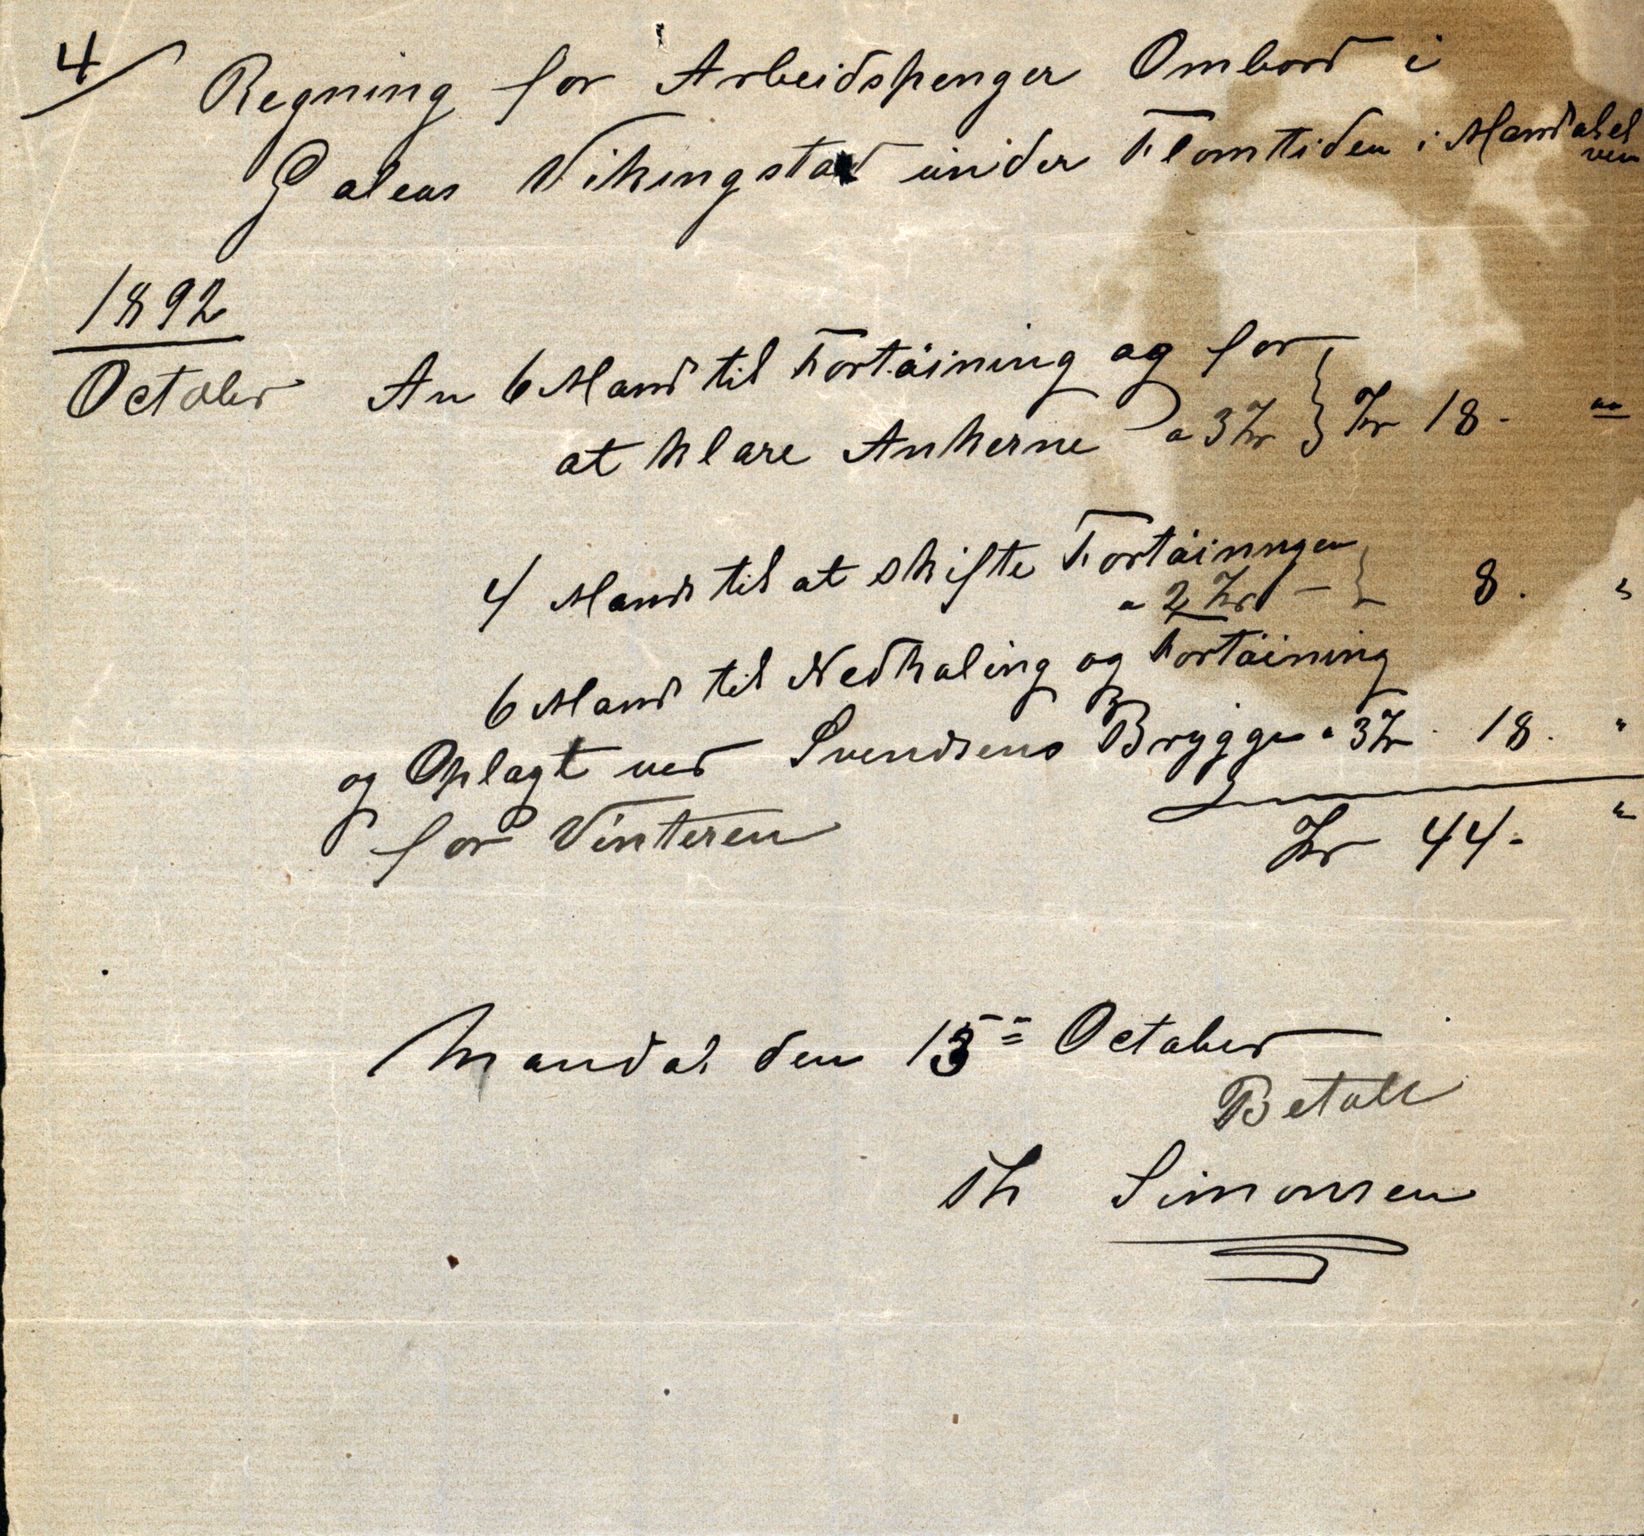 4/ Regning for Arbeidspenger Ombord i
Galeas Vikingstad under Flomtiden i Mandalselven
1892
October An 6 Mand til Fortøining og for
at klare Ankerne a 3 Kr } Kr 18 - "
4 Mand til at skifte Fortøiningen
a 2 Kr - } 8. "
6 Mand til Nedhaling og Fortøining
og Oplagt ved Svendsens Brygge a 3 Kr. 18. "
for Vinteren
Kr 44. "
Mandal den October
Betalt
Th Simonsen